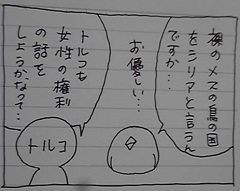 裸のメスの鳥の国
をシリアと言うん
ですか…
お優しい…
トルコも
女性の権利
の話を
しようかなって…
トルコ